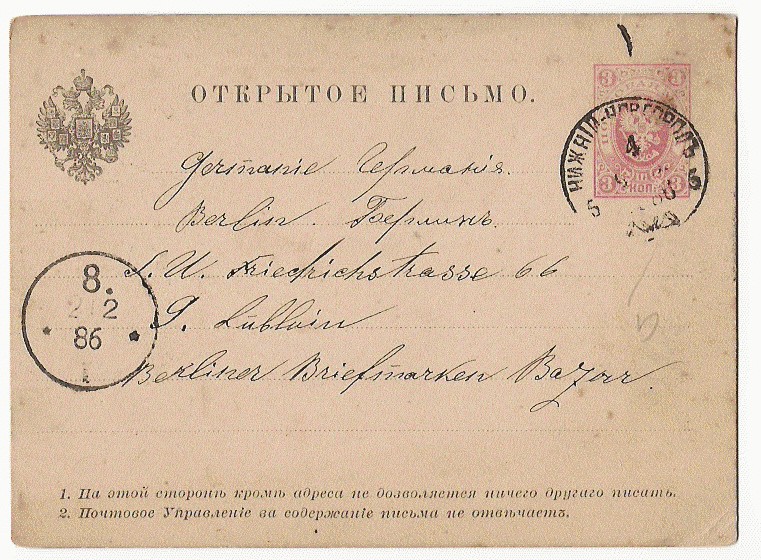 ОТКРЫТОЕ ПИСЬМО.
3 3
3 КОП. 3
НИЖНІЙ-НОВГОРОДЪ
4
5 5
Germanie Германія.
Berlin. Берлинъ.
S. W. Friedrichstrasse 66
8.
2 12
86
Berliner Briefmarken Bazar.
1. На этой сторонѣ кромѣ адреса не дозволяется ничего другаго писать.
2. Почтовое Управленіе за содержаніе письма не отвѣчаетъ.